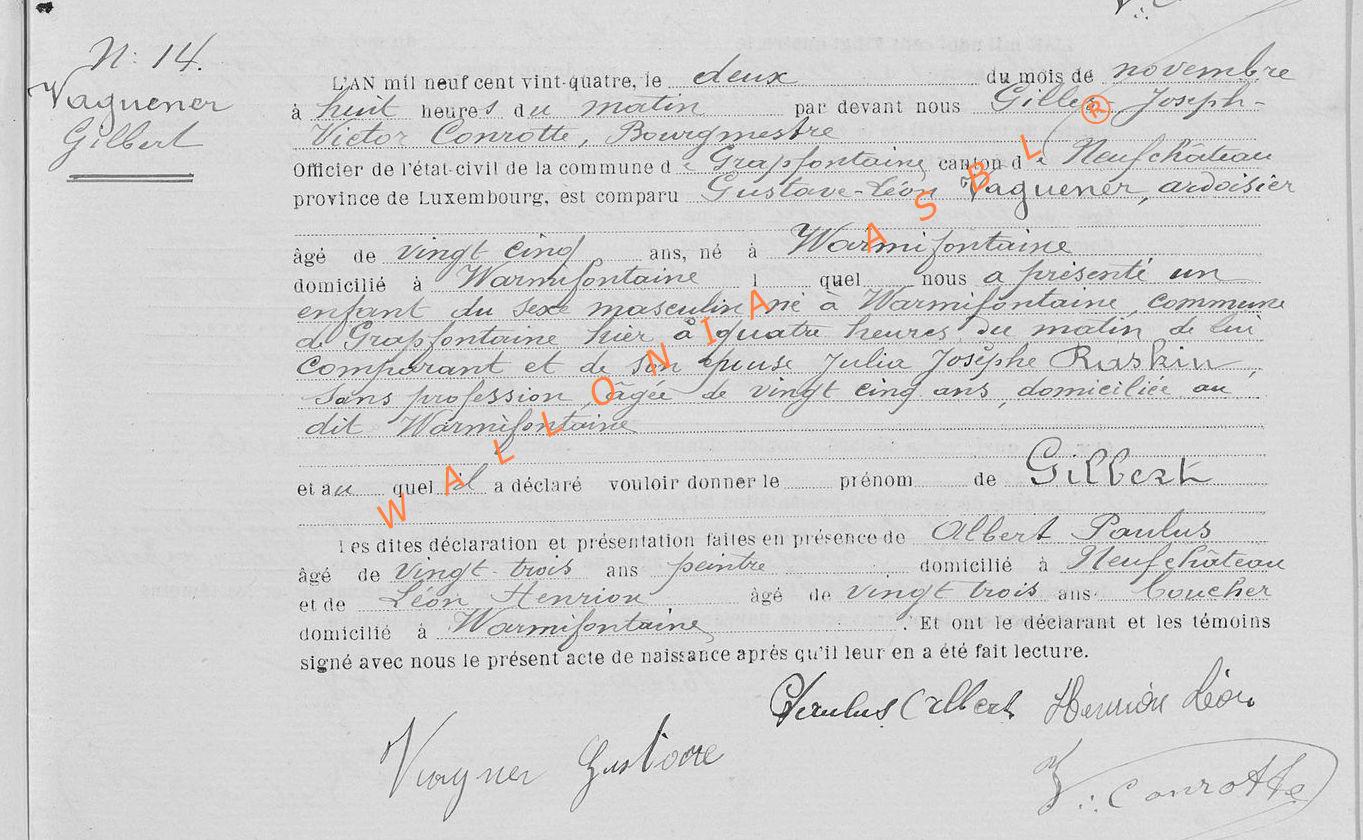 N: 14.
Vaguener
Gilbert
L'AN mil neuf cent vint-quatre, le deux du mois de novembre
à huit heures du matin par devant nous Gilles-Joseph-
Victor Conrotte, Bourgmestre
Officier de l'état-civil de la commune de Grapfontaine canton de Neufchâteau
province de Luxembourg, est comparu Gustave-Léon Vaguener, ardoisier
âgé de vingt cinq ans, né à Warmifontaine
domicilié à Warmifontaine l quel nous a présenté un
enfant du sexe masculin né à Warmifontaine, commune
de Grapfontaine hier à quatre heures du matin de lui
Comparant et de son épouse Julia Josèphe Raskin,
sans profession, âgée de vingt cinq ans, domiciliée au
dit Warmifontaine
et au quel il a déclaré vouloir donner le prénom de Gilbert
Les dites déclaration et présentation faites en présence de Albert Paulus
âgé de vingt-trois ans peintre domicilié à Neufchâteau
et de Léon Henrion âgé de vingt trois ans boucher
domicilié à Warmifontaine. Et ont le déclarant et les témoins
signé avec nous le présent acte de naissance après qu'il leur en a été fait lecture.
Paulus Albert Henrion Léon
Vagner Gustave
V. Conrotte
WALLONIA ASBL ®